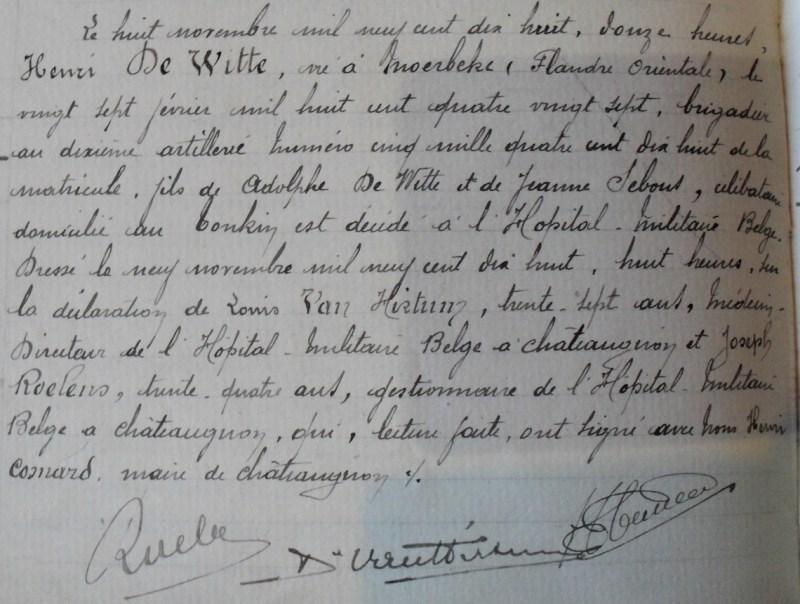 Le huit novembre mil neuf cent dix huit, douze heures,
Henri De Witte, né à Moerbeke (Flandre Orientale) le
vingt sept février mil huit cent quatre vingt sept, brigadier
au dixième artillerie numéro cinq mille quatre cent dix huit de la
matricule, fils de Adolphe De Witte et de Jeanne Sebous, célibataire
domicilié au Tonkin est décédé à l'Hopital-Militaire Belge.
Dressé le neuf novembre mil neuf cent dix huit, huit heures, sur
la déclaration de Louis Van Hirtum, trente-sept ans, Médecin-
Directeur de l'Hôpital-Militaire Belge à châteaugiron et Joseph
Roelens, trente-quatre ans, gestionnaire de l'Hopital-Militaire
Belge à châteaugiron, qui, lecture faite, ont signé avec nous Henri
Cosnard, maire de châteaugiron ./.
Dr Van Hirtum